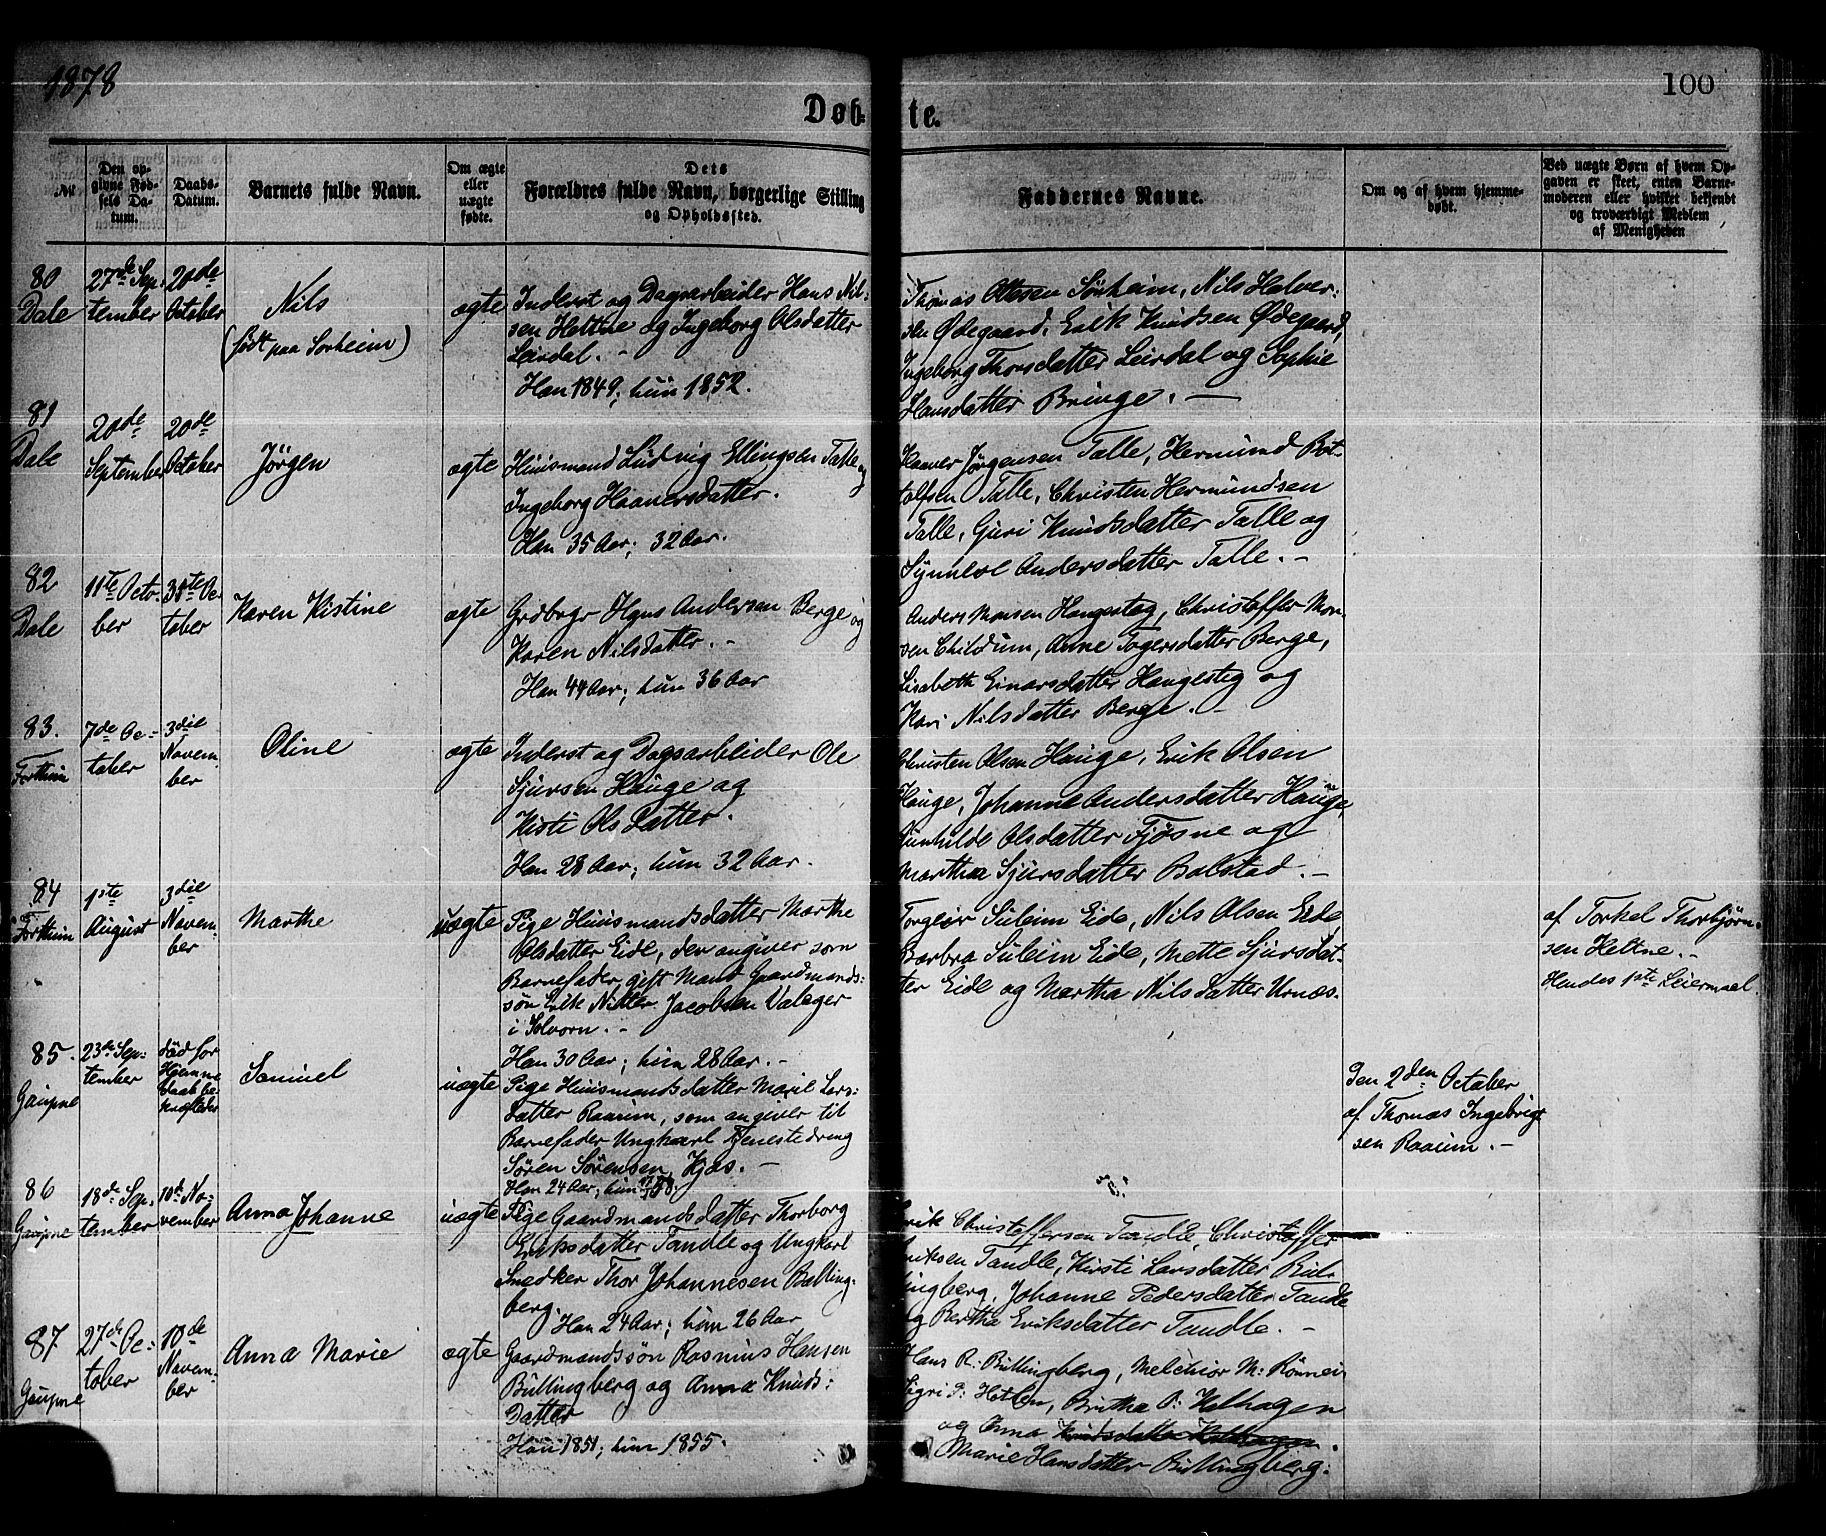 1878
100
Døbte.
No
Den opgivne Fødsels Datum.
Daabs-Datum.
Barnets fulde Navn.
Om ægte eller uægte fødte.
Dets Forældres fulde Navn, borgerlige Stilling og Opholdssted.
Faddernes Navne.
Om og af hvem hjemmedøbt.
Ved uægte Børn af hvem Opgaven er skeet, enten Barnemoderen eller hvilket bekjendt og troværdigt Medlem af Menigheden
80
Dale
27de Sep-
tember
20de
October
Nils
(født paa Sørheim)
ægte
Inderst og Dagsarbeider Hans Nil-
sen Hettne og Ingeborg Olsdatter
Leirdal. -
Han 1849; hun 1852.
Thomas Ottesen Sørheim, Nils Halver-
sen Ødegaard, Erik Knudsen Ødegaard,
Ingeborg Thorsdatter Leirdal og Sophie
Hansdatter Bringe. -
81
Dale
20de
September
20de
October
Jörgen
ægte
Huusmand Ludvig Ellingsen Talle og
Ingeborg Haaversdatter.
Han 35 Aar; 32 Aar.
Haaver Jörgensen Talle, Hermund Bot-
tolfsen Talle, Christen Hermundsen
Talle, Guri Knudsdatter Talle og
Synneve Andersdatter Talle. -
82
Dale
11te Octo-
ber
31te Oc-
tober
Karen Kistine
ægte
Grdbrgr Hans Andersen Berge og
Karen Nilsdatter. -
Han 44 Aar; hun 36 Aar
Anders Monsen Haugesteg, Christoffer Mon-
sen Childum, Anne Togersdatter Berge,
Lisabeth Einarsdatter Haugesteg og
Kari Nilsdatter Berge. -
83.
Forthun
7de Oc-
tober
3die
Novem-
ber
Oline
ægte
Inderst og Dagsarbeider Ole
Sjursen Hauge og
Kisti Olsdatter.
Han 28 Aar; hun 32 Aar.
Christen Olsen Hauge, Erik Olsen
Hauge, Johanne Andersdatter Hauge,
Gunhilde Olsdatter Fjøsne og
Martha Sjursdatter Bolstad. -
84
Forthun
1ste
August
3die
Novem-
ber
Marthe
uægte
Pige Huusmandsdatter Marthe
Olsdatter Eide, der angiver som
Barnefader gift Mand Gaardmands-
søn Erik Jacobsen Valeger
i Solvorn. -
Han 30 Aar; hun 28 Aar. -
Torgeir Suleim Eide, Nils Olsen Eide
Barbra Suleim Eide, Mette Sjursdat-
ter Eide og Martha Nilsdatter Urnæs.
af Torkel Thorbjørn-
sen Hettne. -
Hendes 1ste Leiermaal.
85.
Gaupne
23de Sep-
tember
død før
Hjemme
daab be-
kræftedes
Samuel
uægte
Pige Huusmandsdatter Maril Lars-
datter Raarim, som angiver til
Barnefader Ungkarl Tjenestedreng
Søren Sørensen Kjøs. -
Han 24 Aar; hun
Den 2den October
af Thomas Ingebrigt
sen Raarim. -
86
Gaupne
18de Sep-
tember
10de No-
vember
Anna Johanne
uægte
Pige Gaardmandsdatter Thorborg
Eriksdatter Tandle og Ungkarl
Snedker Thor Johannesen Bulling-
berg.
Han 24 Aar; hun 26 Aar
Erik Christoffersen Tandle, Christoffer
Eriksen Tandle, Kirsti Larsdatter Bul-
lingberg, Johanne Pedersdatter Tandle
og Bertha Eriksdatter Tandle. -
87
Gaupne
27de Oc-
tober
10de
Novem-
ber
Anna Marie
ægte
Gaardmandssøn Rasmus Hansen
Bullingberg og Anna Knuds-
datter
Han 1851; hun 1855.
Hans R. Bullingberg, Melchior M. Rönnei
Sigri P. Britha P. Kalhagen
og Anna Knudsdatter Kalhagen.
Marie Hansdatter Bullingberg.